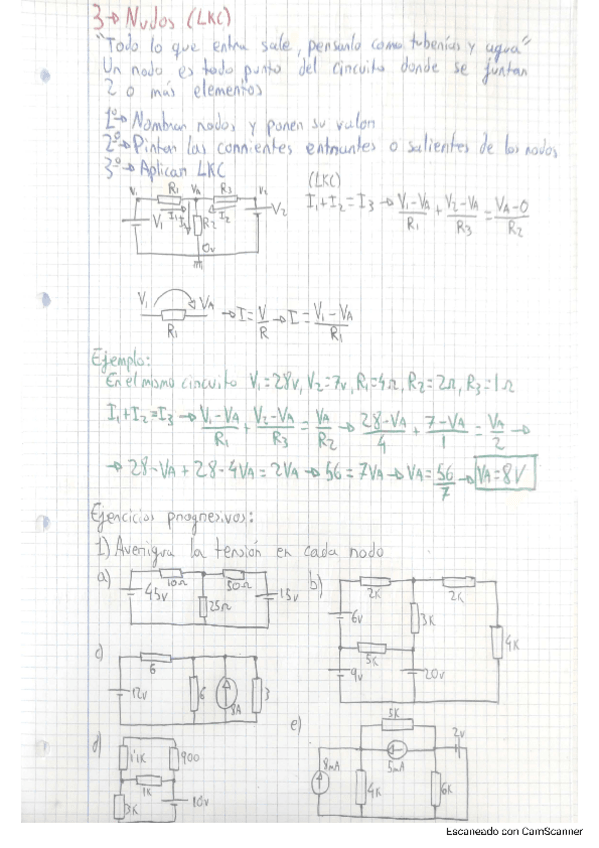 3→Nudos (LKC)
"Todo lo que entra sale, pensarlo como tuberías y agua"
Un nodo es todo punto del circuito donde se juntan
2 o más elementos
1º→Nombrar nodos y poner su valor
2º→Pintar las corrientes entrantes o salientes de los nodos
3º→Aplicar LKC
V₁ R₁ VA R₃ V₂
V₁ I₁ I₃ R₂ I₂ V₂
0v
(LKC)
I₁+I₂=I₃→(V₁-VA)/R₁+(V₂-VA)/R₃=(VA-0)/R₂
V₁ VA R₁ →I=V/R→I=(V₁-VA)/R₁
Ejemplo:
En el mismo circuito V₁=28v, V₂=7v, R₁=4Ω, R₂=2Ω, R₃=1Ω
I₁+I₂=I₃→(V₁-VA)/R₁+(V₂-VA)/R₃=VA/R₂→(28-VA)/4+(7-VA)/1=VA/2→
→28-VA+28-4VA=2VA→56=7VA→VA=56/7→VA=8V
Ejercicios progresivos:
1) Averigua la tensión en cada nodo
a) 10Ω 50Ω
45v 25Ω 15v
b) 2K 2K
6v 3K
5K 4K
9v 20v
c) 6
12v 6 8A 3
d) 1'1K 900
1K
3K 10v
e) 3K 2v
8mA 5mA
4K 6K
Escaneado con CamScanner